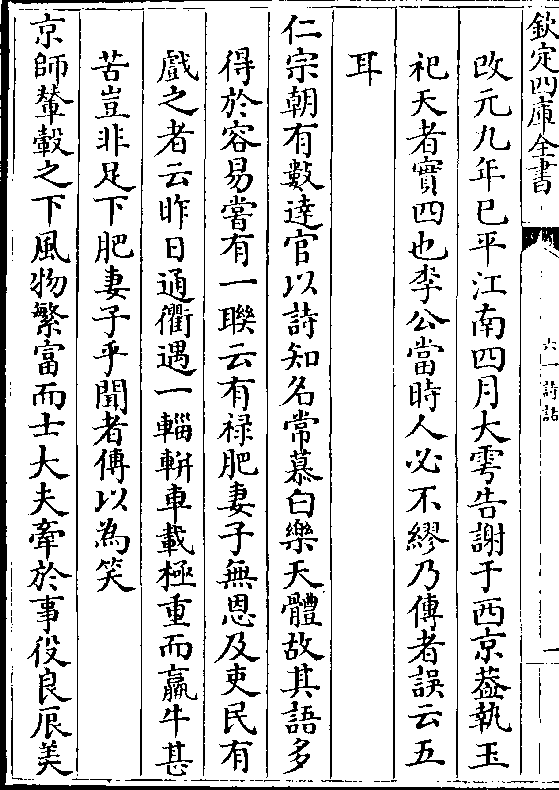 欽定四庫全書
六一詩話
一
改元九年已平江南四月大雩告謝于西京葢執玉
祀天者實四也李公當時人必不繆乃傳者誤云五
耳
仁宗朝有數達官以詩知名常慕白樂天體故其語多
得於容易嘗有一聯云有禄肥妻子無恩及吏民有
戲之者云昨日通衢遇一輜軿車載極重而羸牛甚
苦豈非足下肥妻子乎聞者傳以為笑
京師輦轂之下風物繁富而士大夫牽於事役良辰美